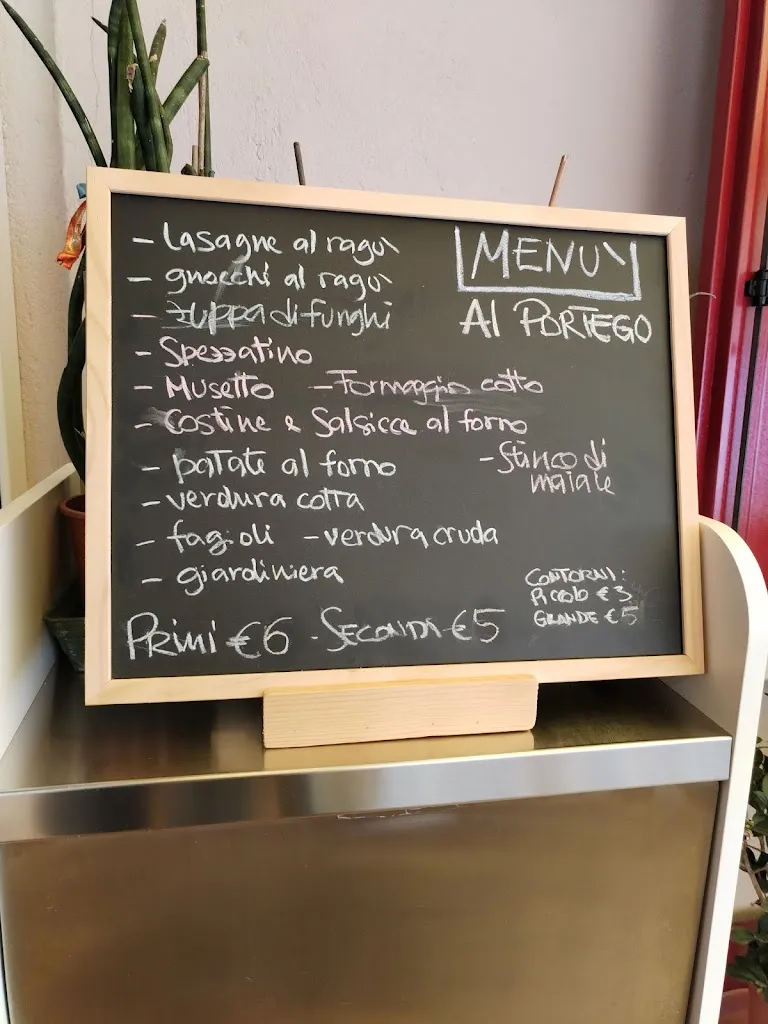 MENU'
Al PORTEGO
- lasagne al ragu'
- gnocchi al ragu'
- zuppa di funghi
- Spezzatino
- Musetto - Formaggio cotto
- Costine e Salsicce al forno
- patate al forno - Stinco di maiale
- verdura cotta
- fagioli - verdura cruda
- giardiniera
CONTORNI:
PICCOLO €3
GRANDE €5
PRIMI €6 - SECONDI - €5